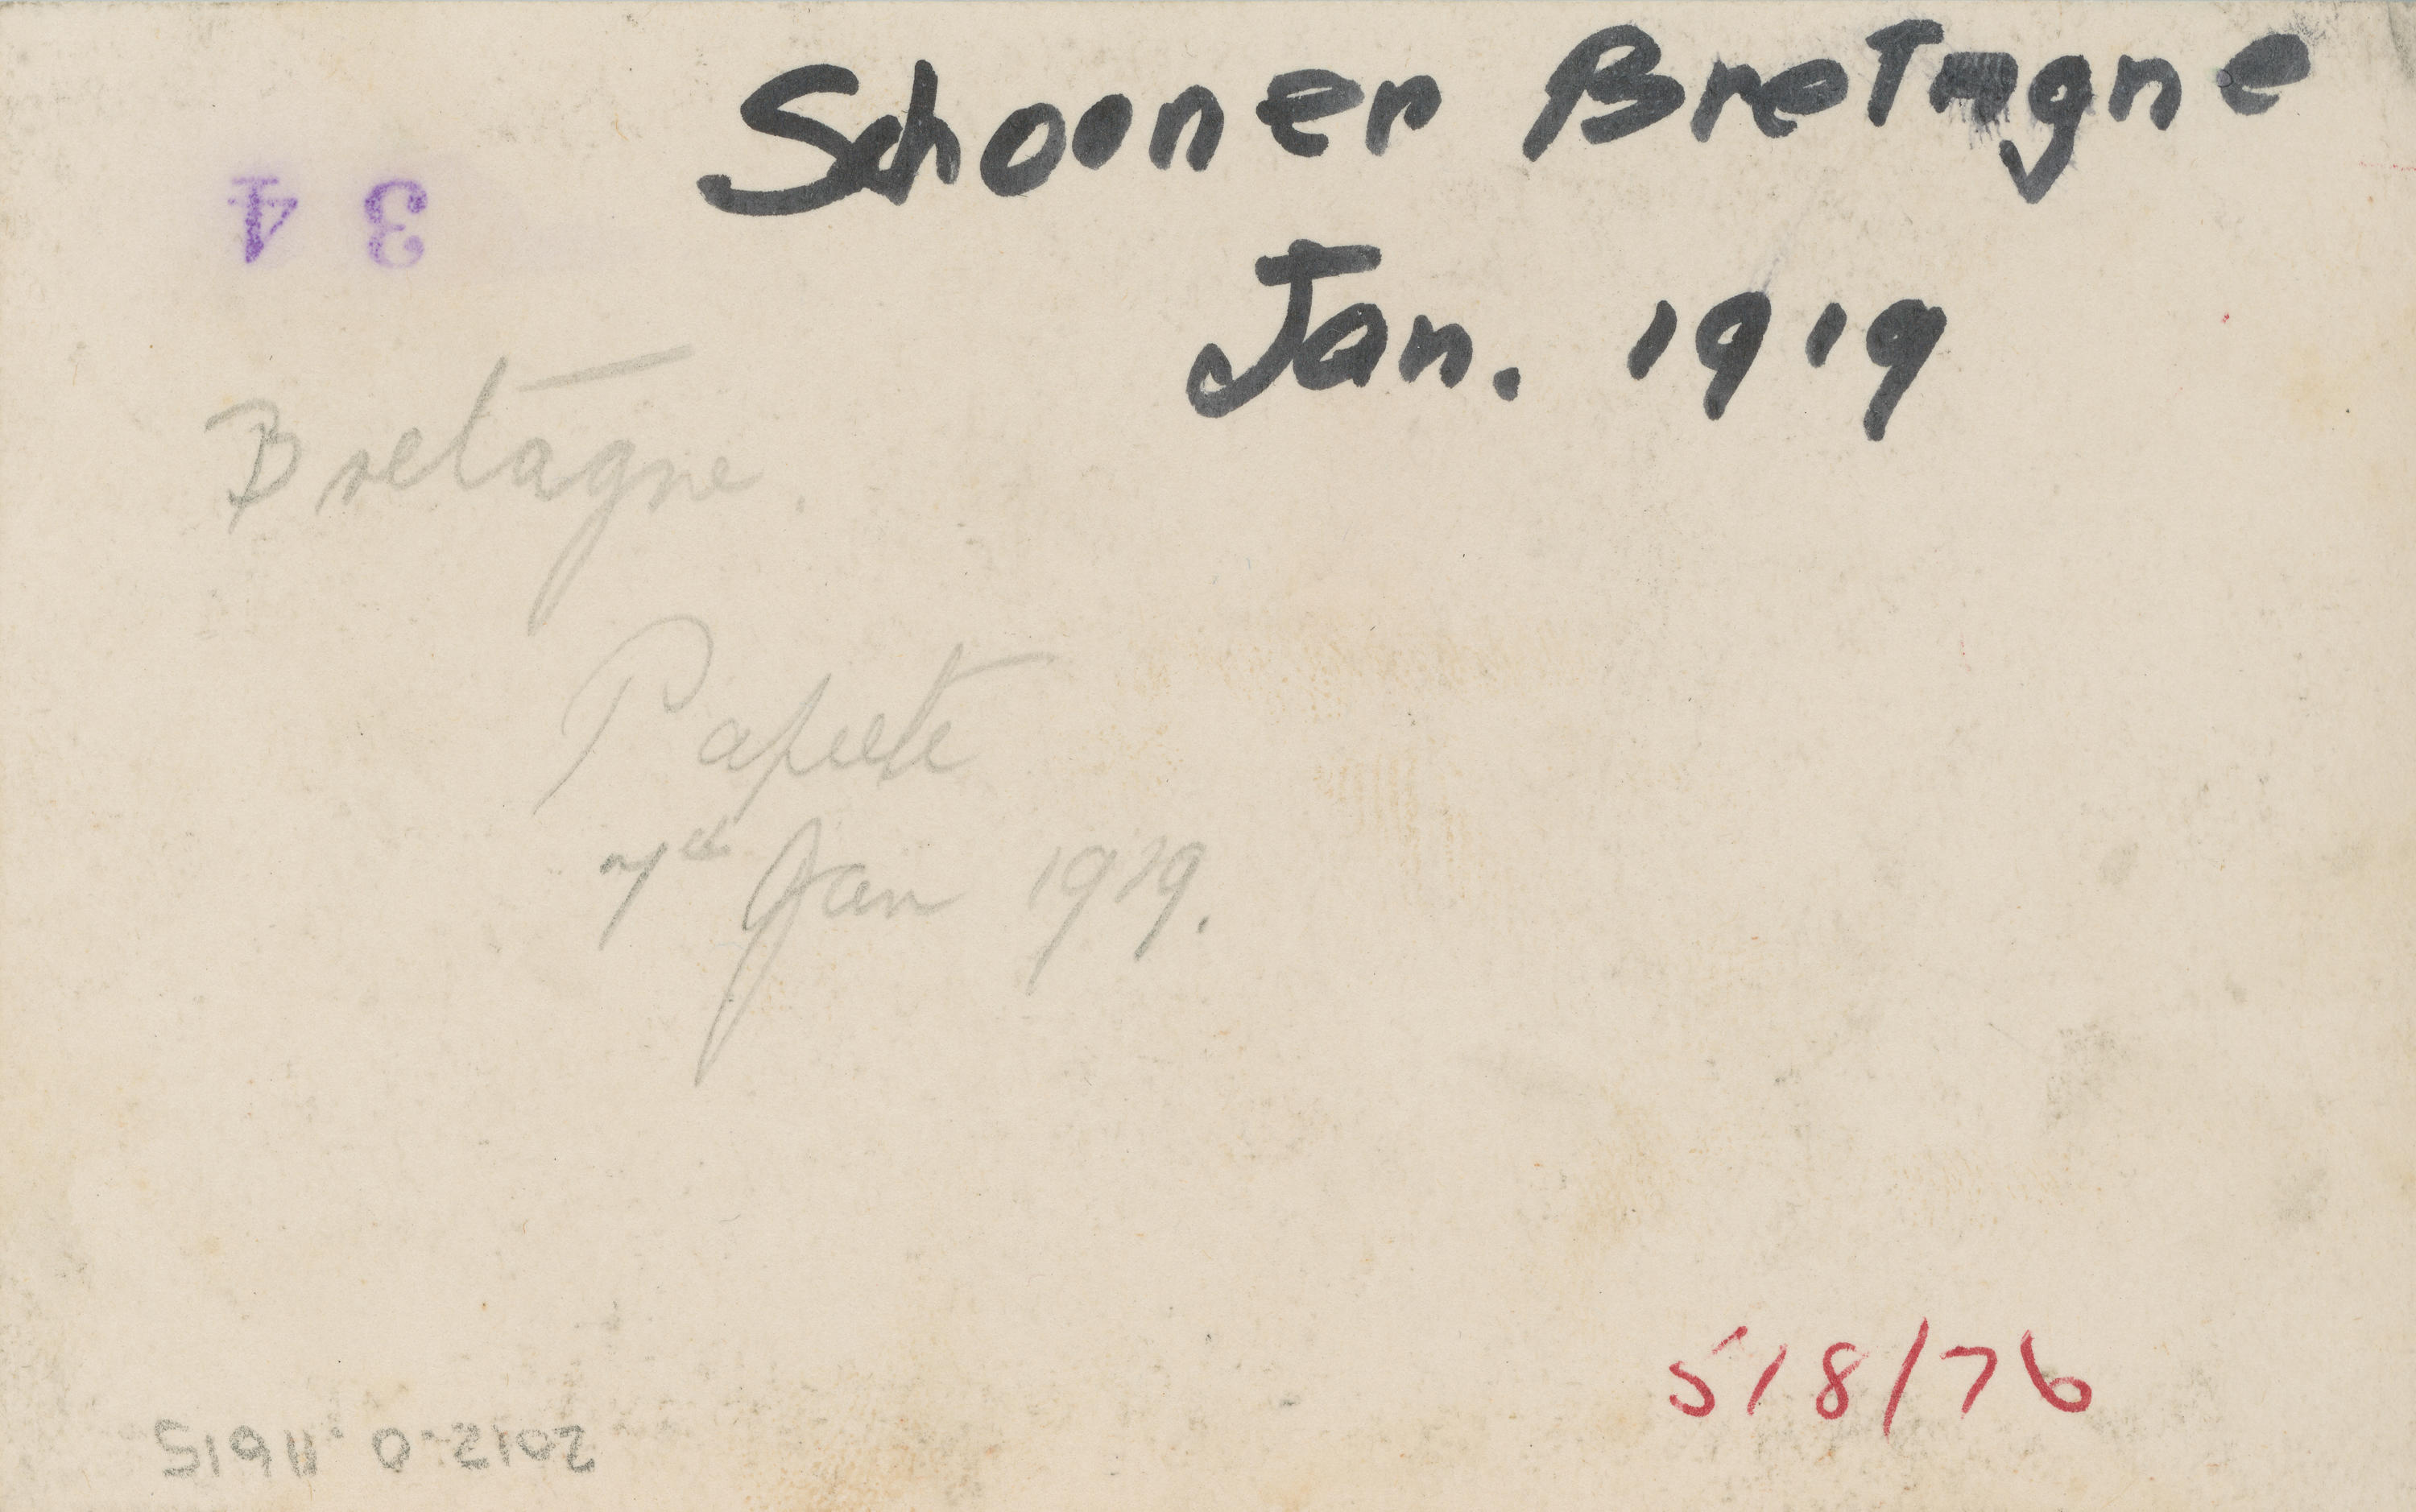 Schooner Bretagne
Jan. 1919
3 4
Bretagne.
Papeete
7th Jan 1919.
518/76
2012.0.11615